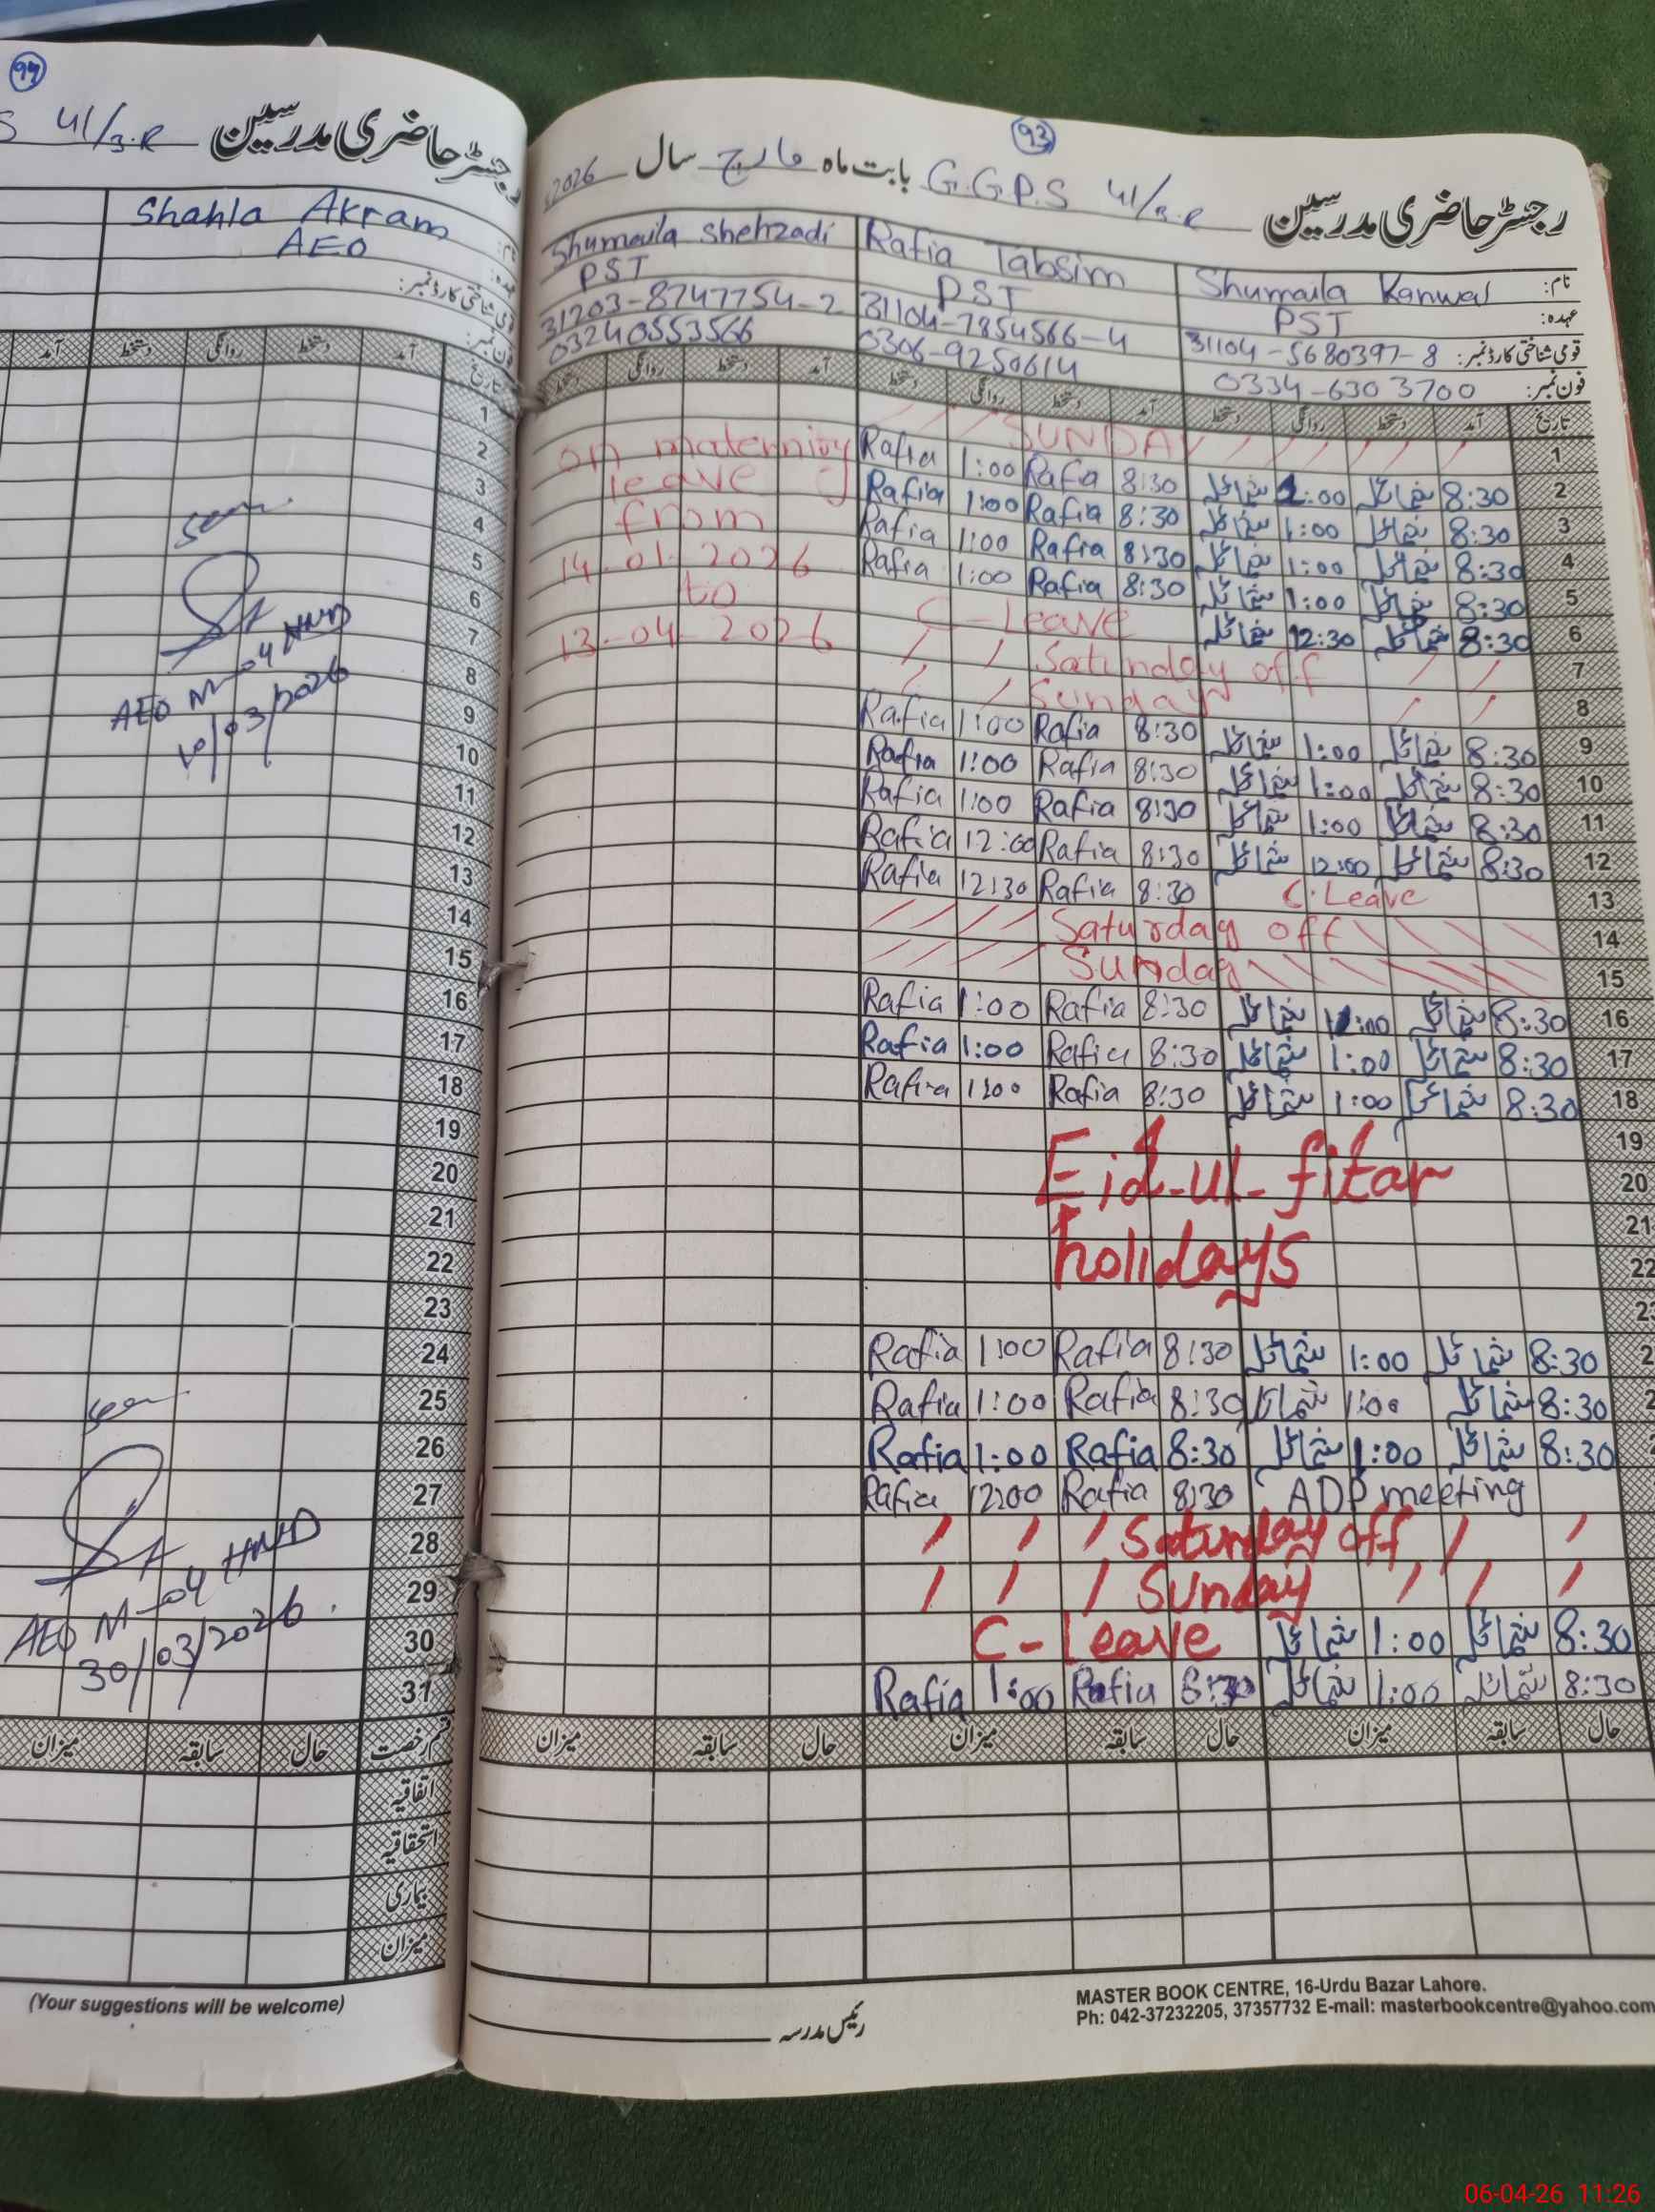 94
S 41/3.R رجسٹر حاضری مدرسین
Shahla Akram نام:
AEO عہدہ:
قومی شناختی کارڈ نمبر:
فون نمبر:
آمد دستخط روانگی دستخط آمد تاریخ
1
2
3
4
5
6
7
8
9
10
11
12
13
14
15
16
17
18
19
20
21
22
23
24
25
26
27
28
29
30
31
seen
AEO M-04 HND
10/03/2026
seen
AEO M-04 HND
30/03/2026
میزان سابقہ حال قسم رخصت
اتفاقیہ
استحقاقیہ
بیماری
میزان
(Your suggestions will be welcome)
93
رجسٹر حاضری مدرسین G.G.P.S 41/3.R بابت ماہ مارچ سال 2026
Shumaila Shehzadi Rafia Tabsim Shumaila Kanwal نام:
PST PST PST عہدہ:
31203-8747754-2 31104-7854566-4 31104-5680397-8 قومی شناختی کارڈ نمبر:
03240553566 0306-9250614 0334-6303700 فون نمبر:
دستخط روانگی دستخط آمد دستخط روانگی دستخط آمد دستخط روانگی دستخط آمد تاریخ
SUNDAY 1
on maternity Rafia 1:00 Rafia 8:30 شمائلہ 1:00 شمائلہ 8:30 2
leave Rafia 1:00 Rafia 8:30 شمائلہ 1:00 شمائلہ 8:30 3
from Rafia 1:00 Rafia 8:30 شمائلہ 1:00 شمائلہ 8:30 4
14-01-2026 Rafia 1:00 Rafia 8:30 شمائلہ 1:00 شمائلہ 8:30 5
to C-Leave شمائلہ 12:30 شمائلہ 8:30 6
13-04-2026 Saturday off 7
Sunday 8
Rafia 1:00 Rafia 8:30 شمائلہ 1:00 شمائلہ 8:30 9
Rafia 1:00 Rafia 8:30 شمائلہ 1:00 شمائلہ 8:30 10
Rafia 1:00 Rafia 8:30 شمائلہ 1:00 شمائلہ 8:30 11
Rafia 12:00 Rafia 8:30 شمائلہ 12:00 شمائلہ 8:30 12
Rafia 12:30 Rafia 8:30 C.Leave 13
Saturday off 14
Sunday 15
Rafia 1:00 Rafia 8:30 شمائلہ 1:00 شمائلہ 8:30 16
Rafia 1:00 Rafia 8:30 شمائلہ 1:00 شمائلہ 8:30 17
Rafia 1:00 Rafia 8:30 شمائلہ 1:00 شمائلہ 8:30 18
19
Eid-ul-fitar 20
21
holidays 22
2
Rafia 1:00 Rafia 8:30 شمائلہ 1:00 شمائلہ 8:30 2
Rafia 1:00 Rafia 8:30 شمائلہ 1:00 شمائلہ 8:30 2
Rafia 1:00 Rafia 8:30 شمائلہ 1:00 شمائلہ 8:30
Rafia 12:00 Rafia 8:30 ADP meeting
Saturday off
Sunday
C-Leave شمائلہ 1:00 شمائلہ 8:30
Rafia 1:00 Rafia 8:30 شمائلہ 1:00 شمائلہ 8:30
میزان سابقہ حال میزان سابقہ حال میزان سابقہ حال
رئیس مدرسہ
MASTER BOOK CENTRE, 16-Urdu Bazar Lahore.
Ph: 042-37232205, 37357732 E-mail: masterbookcentre@yahoo.com
06-04-26 11:26